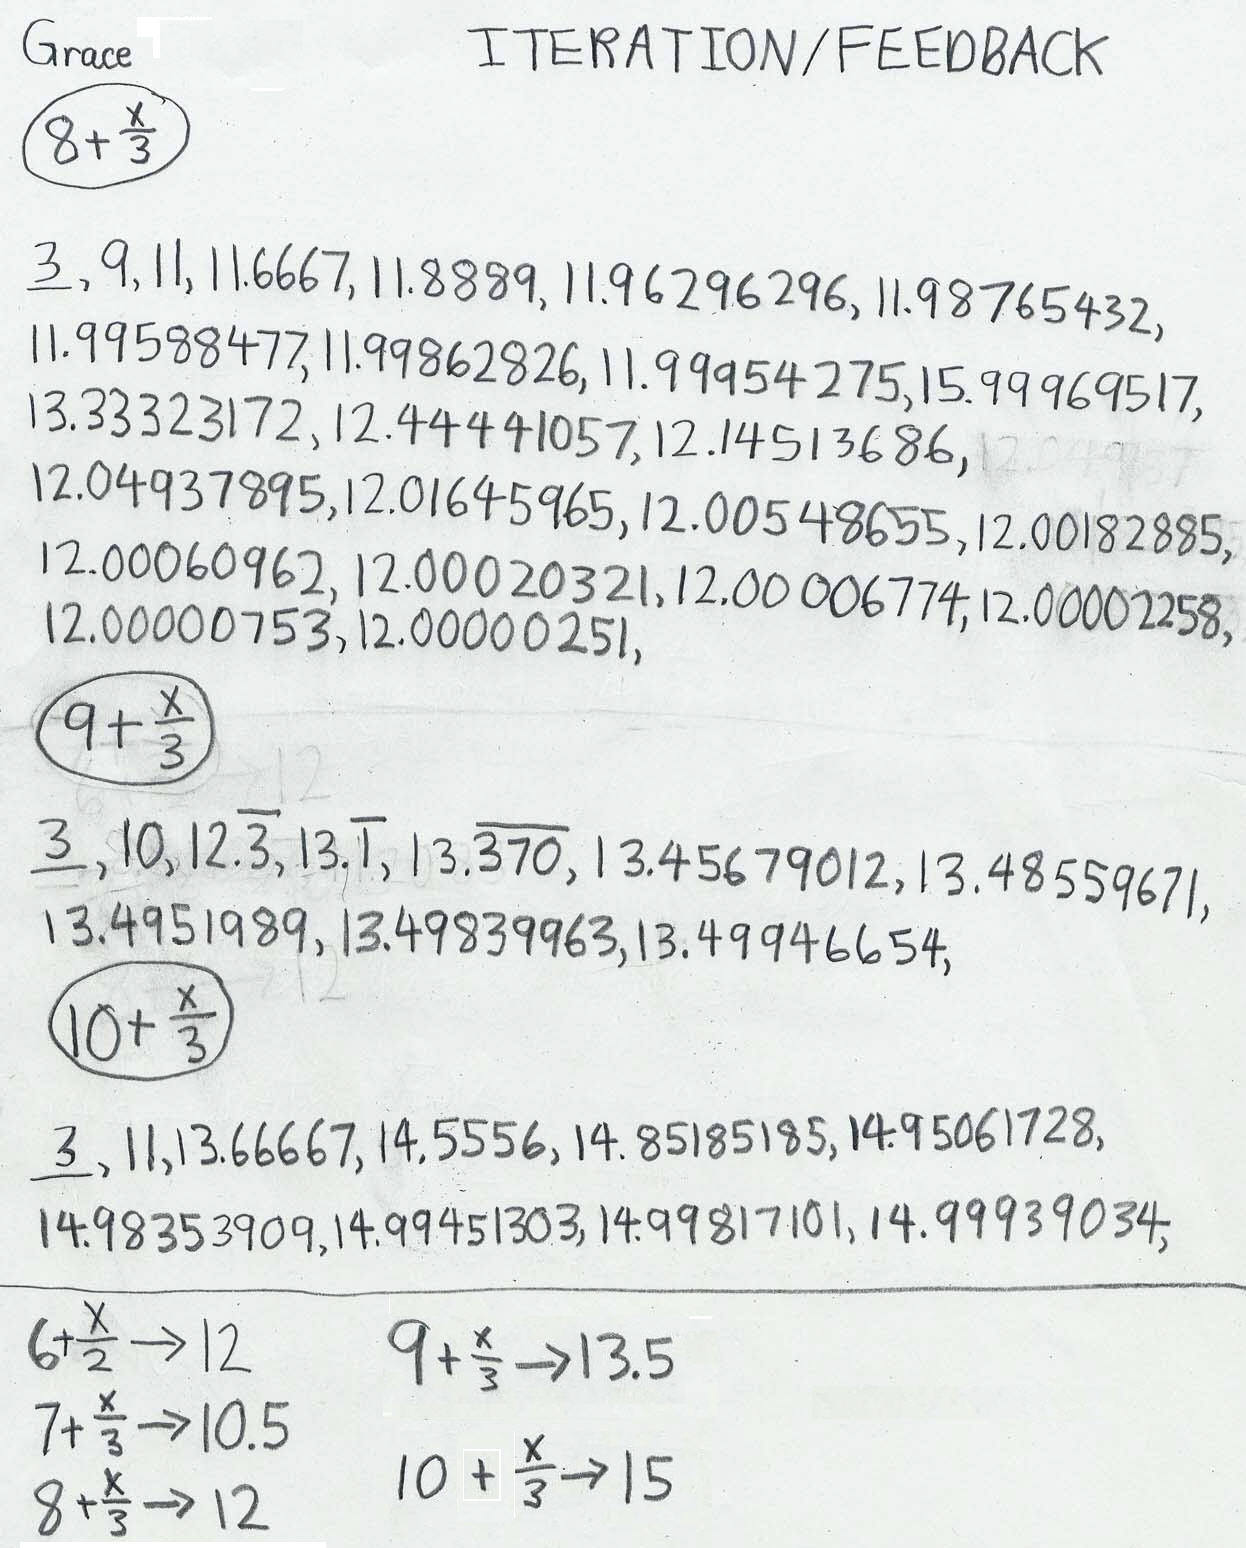 Grace
ITERATION/FEEDBACK
8+x/3
3, 9, 11, 11.6667, 11.8889, 11.96296296, 11.98765432,
11.99588477, 11.99862826, 11.99954275, 15.99969517,
13.33323172, 12.44441057, 12.14513686,
12.04937895, 12.01645965, 12.00548655, 12.00182885,
12.00060962, 12.00020321, 12.00006774, 12.00002258,
12.00000753, 12.00000251,
9+x/3
3, 10, 12.3̅, 13.1̅, 13.3̅7̅0̅, 13.45679012, 13.48559671,
13.4951989, 13.49839963, 13.49946654,
10+x/3
3, 11, 13.66667, 14.5556, 14.85185185, 14.95061728,
14.98353909, 14.99451303, 14.99817101, 14.99939034,
6+x/2→12
7+x/3→10.5
8+x/3→12
9+x/3→13.5
10+x/3→15